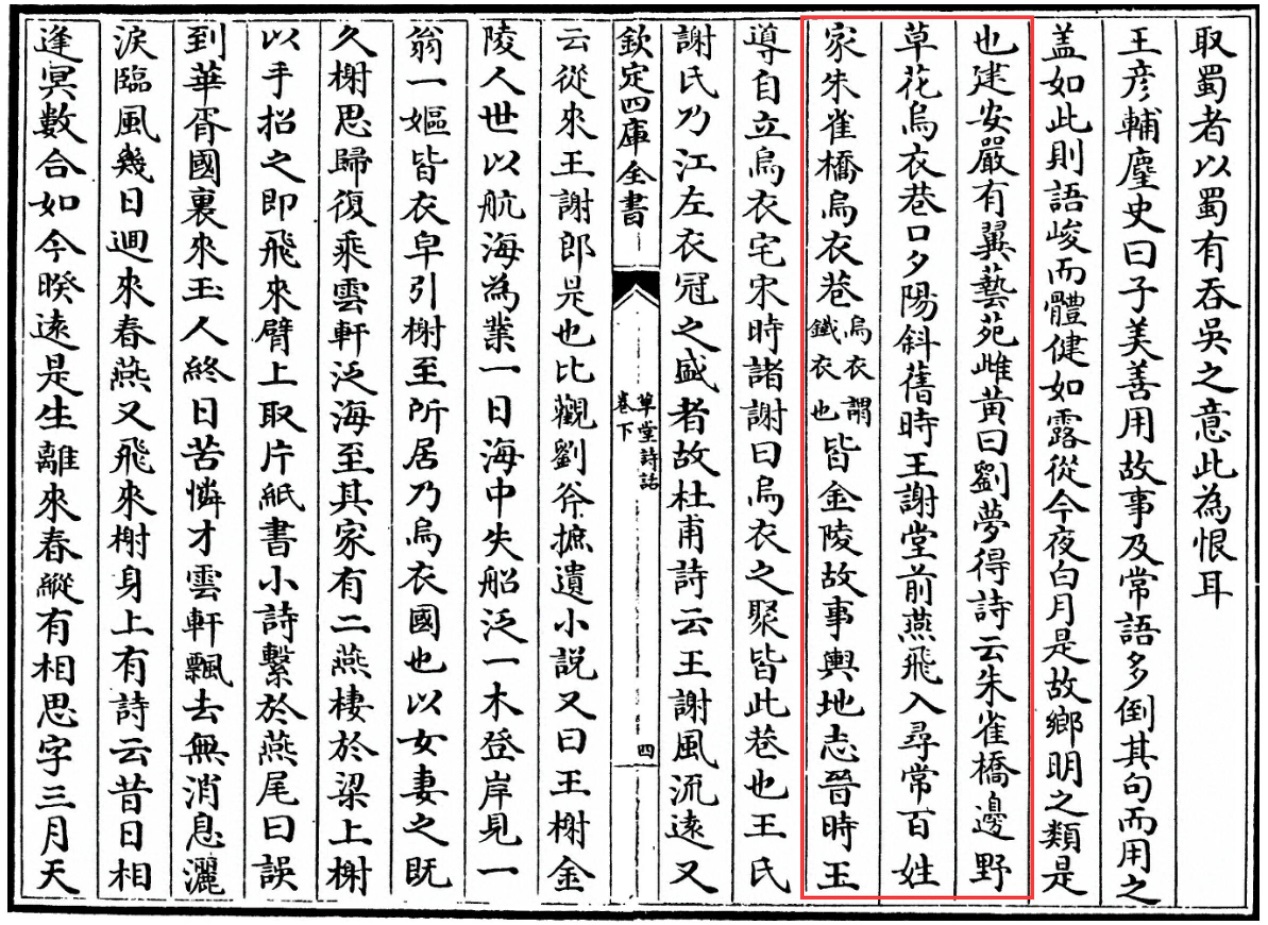 取蜀者以蜀有吞吳之意此為恨耳
王彥輔麈史曰子美善用故事及常語多倒其句而用之
盖如此則語峻而體健如露從今夜白月是故鄉明之類是
也建安嚴有翼藝苑雌黄曰劉夢得詩云朱雀橋邊野
草花烏衣巷口夕陽斜舊時王謝堂前燕飛入尋常百姓
家朱雀橋烏衣巷烏衣謂鐵衣也皆金陵故事輿地志晉時王
導自立烏衣宅宋時諸謝曰烏衣之聚皆此巷也王氏
謝氏乃江左衣冠之盛者故杜甫詩云王謝風流逺又
欽定四庫全書
草堂詩話
卷下
四
云從來王謝郎是也比觀劉斧摭遺小説又曰王榭金
陵人世以航海為業一日海中失船泛一木登岸見一
翁一嫗皆衣皁引榭至所居乃烏衣國也以女妻之既
久榭思歸復乘雲軒泛海至其家有二燕棲於梁上榭
以手招之即飛來臂上取片紙書小詩繫於燕尾曰誤
到華胥國裏來玉人終日苦憐才雲軒飄去無消息灑
淚臨風幾日迴來春燕又飛來榭身上有詩云昔日相
逢冥數合如今暌逺是生離來春縱有相思字三月天